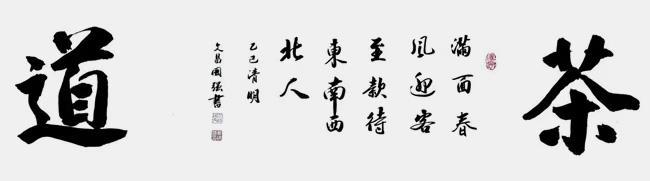 茶
滿面春
風迎客
至款待
東南西
北人
乙巳清明
文昌國強書
道